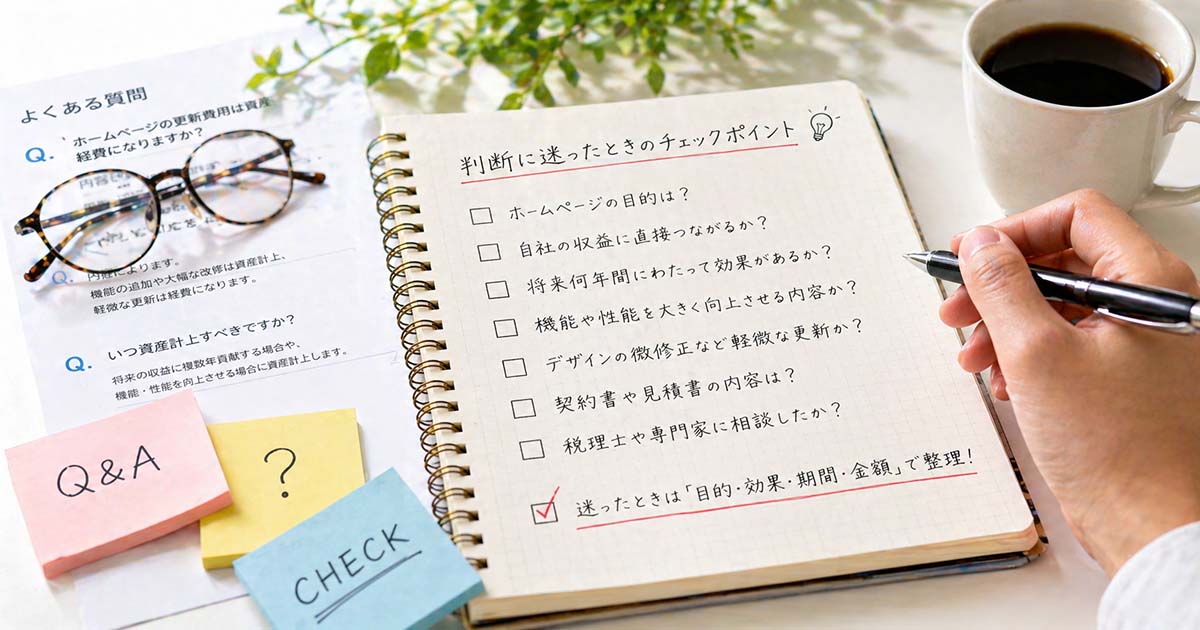 よくある質問
Q. ホームページの更新費用は資産
経費になりますか?
Q.
内容によります。
機能の追加や大幅な改修は資産計上、
軽微な更新は経費になります。
Q. いつ資産計上すべきですか?
将来の収益に複数年貢献する場合や、
機能・性能を向上させる場合に資産計上します。
Q&A
?
CHECK
判断に迷ったときのチェックポイント
ホームページの目的は?
自社の収益に直接つながるか?
将来何年間にわたって効果があるか?
機能や性能を大きく向上させる内容か?
デザインの微修正など軽微な更新か?
契約書や見積書の内容は?
税理士や専門家に相談したか?
迷ったときは「目的・効果・期間・金額」で整理!